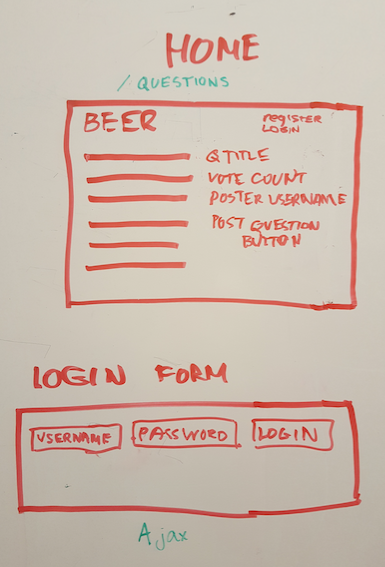 HOME
/QUESTIONS
BEER
register
LOGIN
Q TITLE
VOTE COUNT
POSTER USERNAME
POST QUESTION
BUTTON
LOGIN FORM
USERNAME
PASSWORD
LOGIN
Ajax